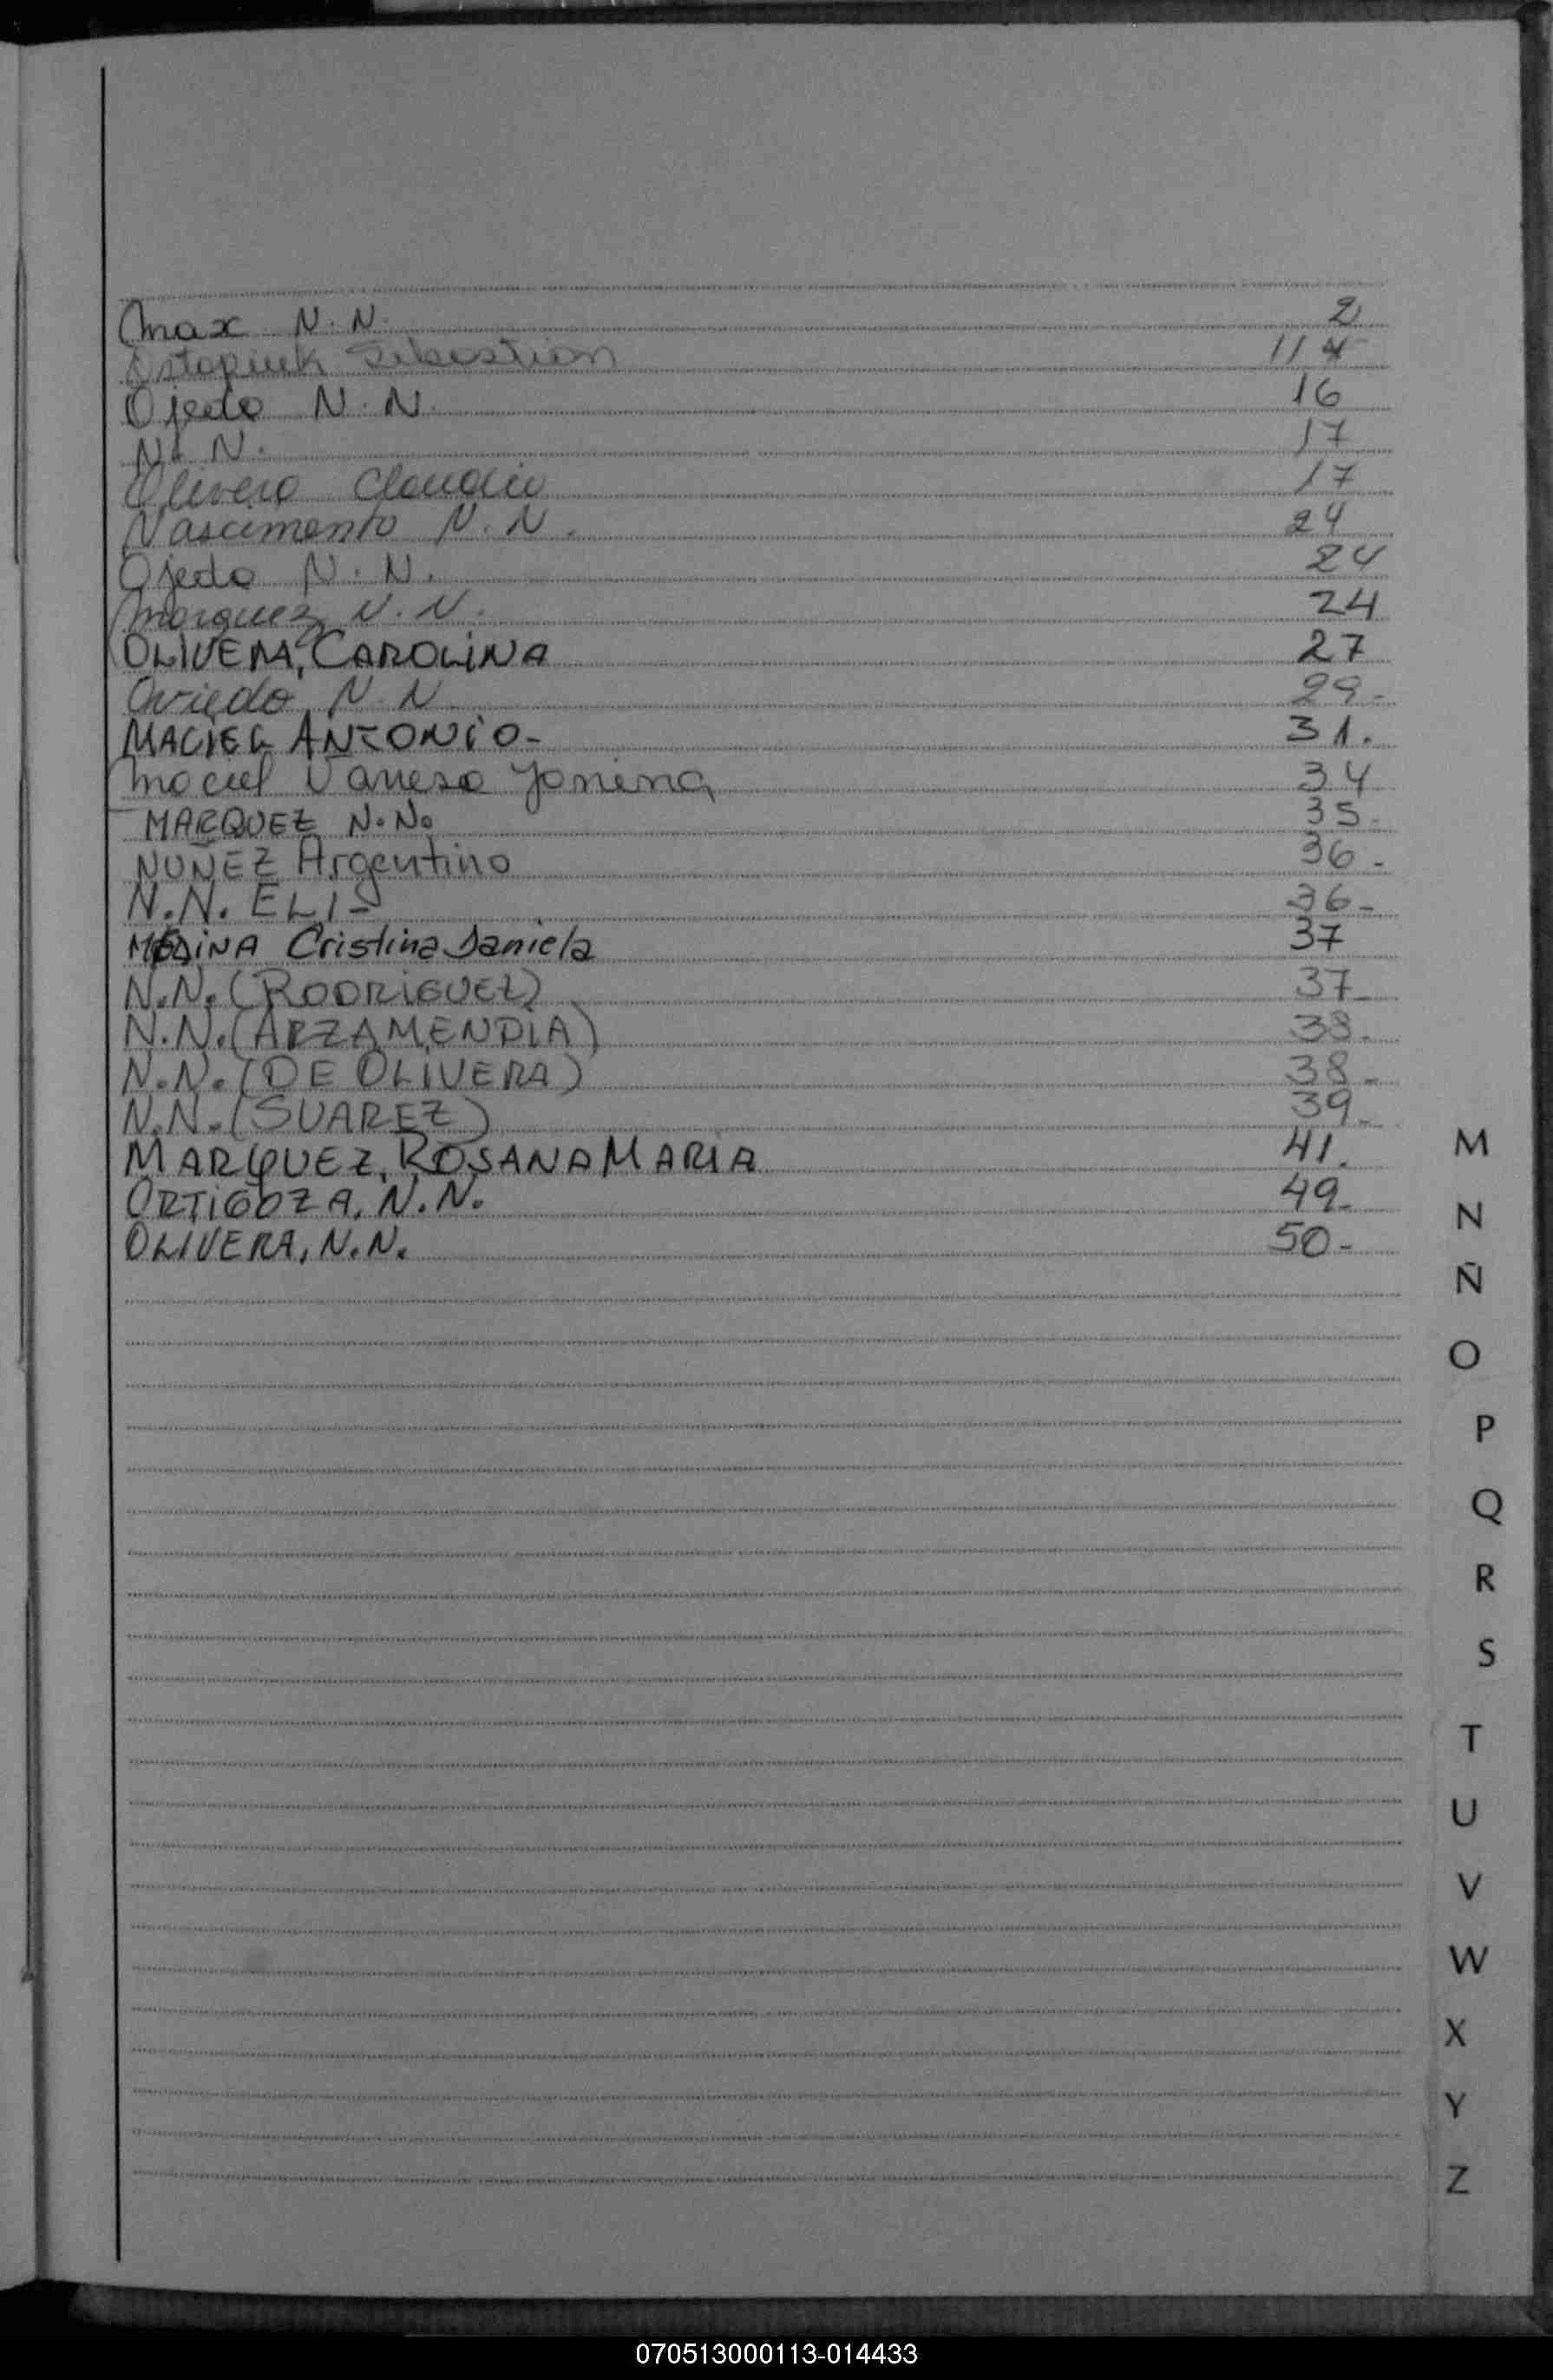 Max N. N. 2
Ostapiuk Sebastian
Ojeda N. N. 16
N. N. 17
Olivera Claudio 17
Nascimento N. N. 24
Ojeda N. N. 24
Marquez N. N. 24
OLIVERA, CAROLINA 27
Oviedo N. N 29-
MACIEL ANTONIO- 31.
Maciel Vanesa Yanina 34
MARQUEZ N.N. 35-
NUÑEZ Argentino 36-
N.N. ELI- 36-
MEDINA Cristina Daniela 37
N.N. (RODRIGUEZ) 37-
N.N. (ARZAMENDIA) 38.
N.N. (DE OLIVERA) 38-
N.N. (SUAREZ) 39-
MARQUEZ, ROSANA MARIA 41.
ORTIGOZA, N.N. 49-
OLIVERA, N.N. 50-
M
N
Ñ
O
P
Q
R
S
T
U
V
W
X
Y
Z
070513000113-014433